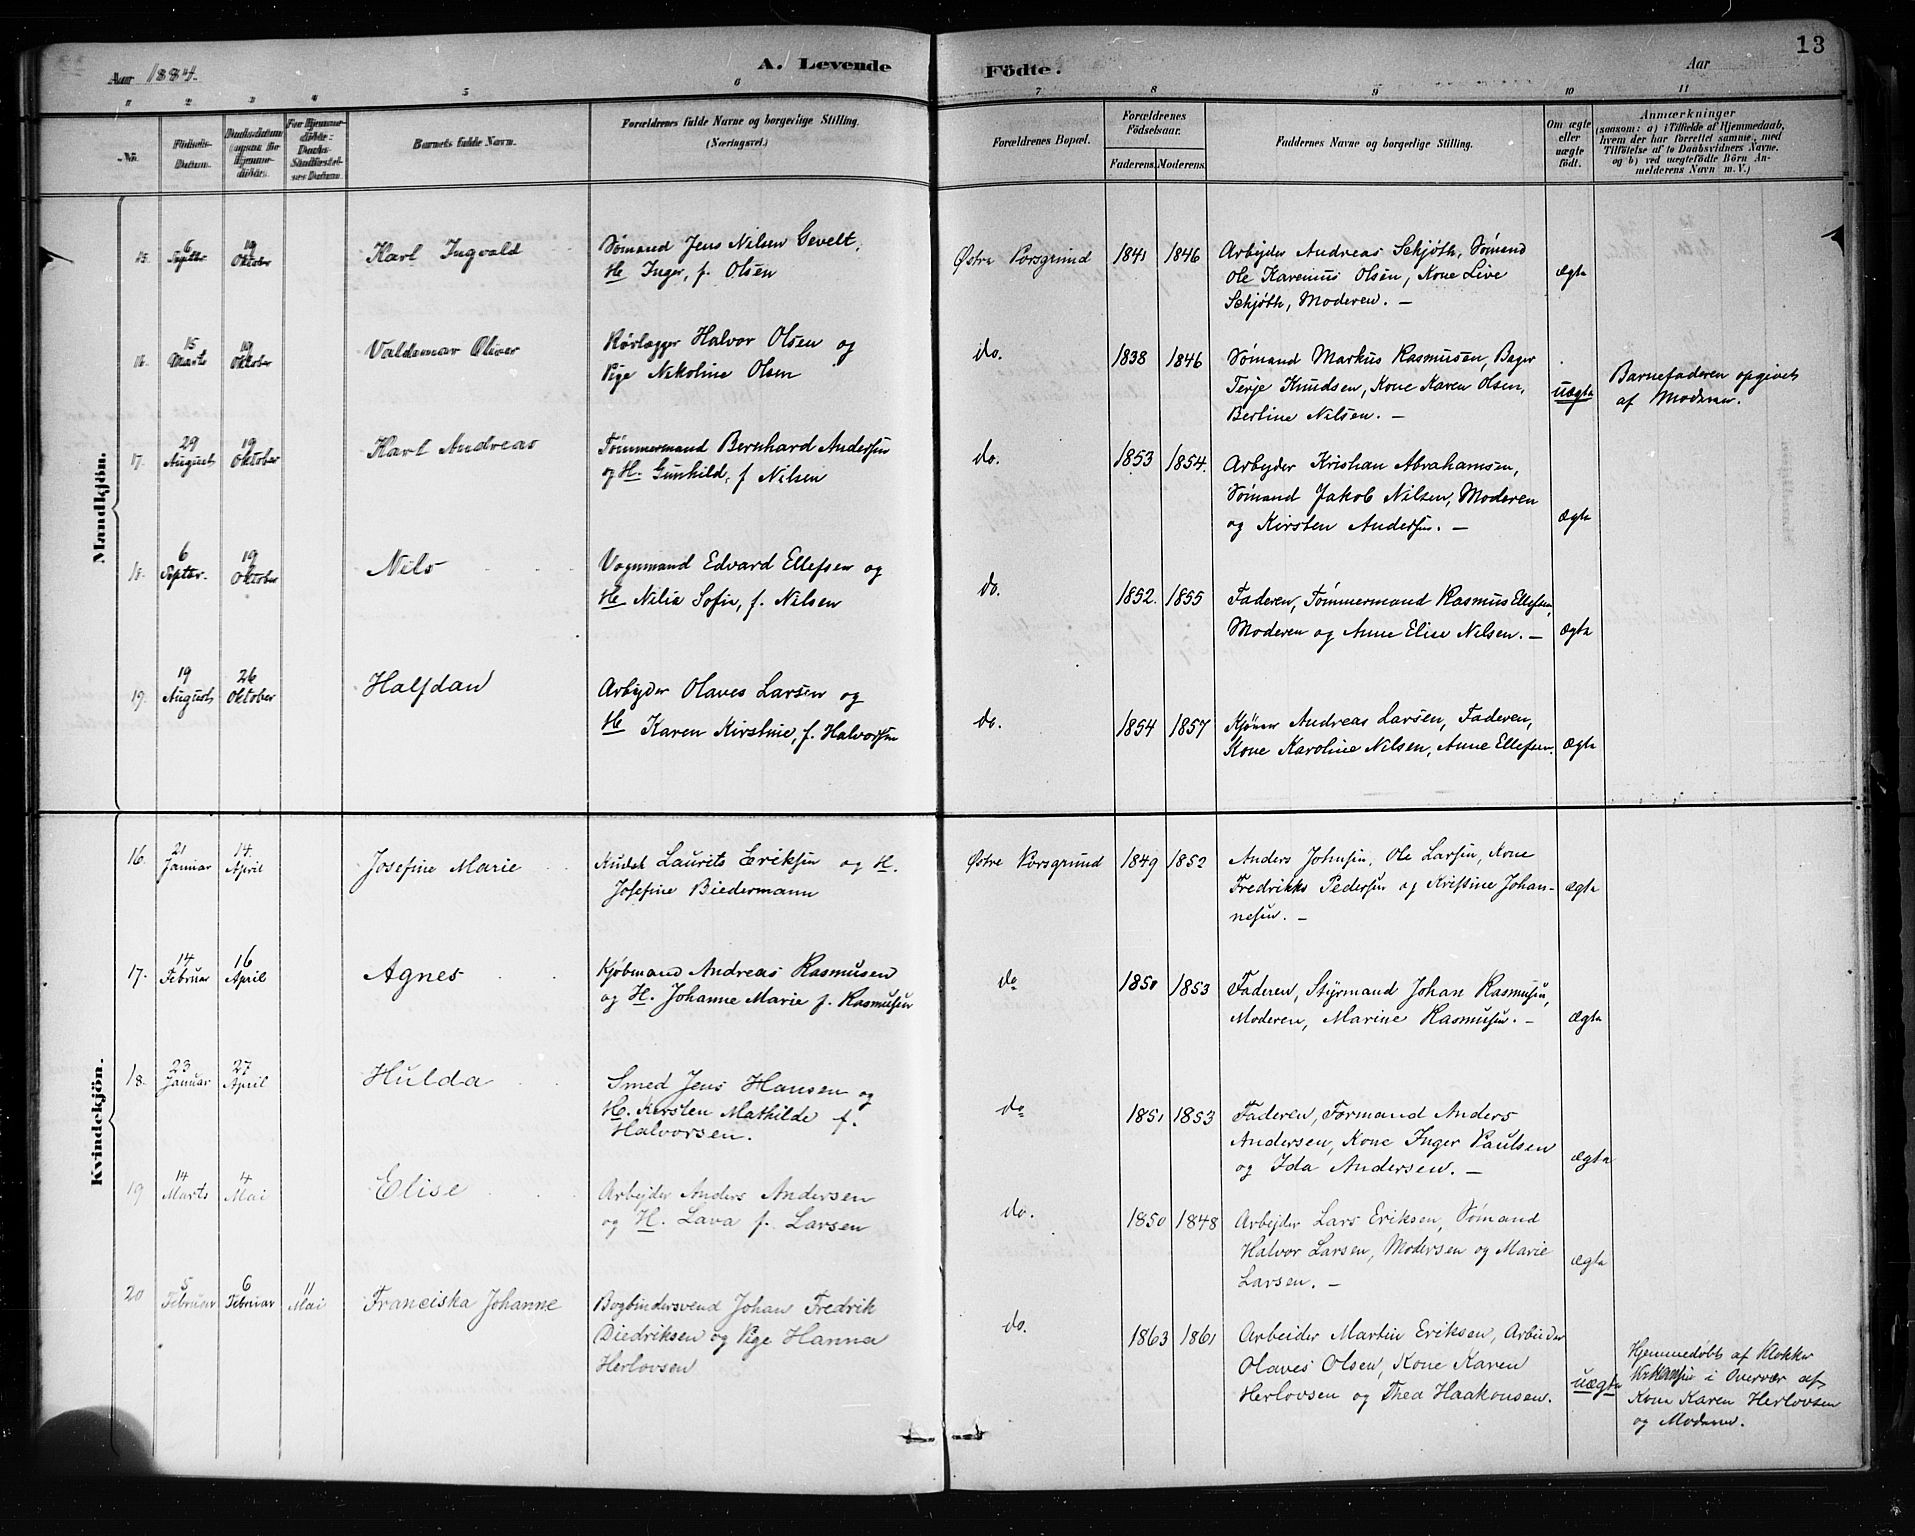 13
Aar 1884.
A. Levende Födte.
Aar
1 2 3 4 5 6 7 8 9 10 11
No.
Födsels-Datum.
Daabsdatum
Barnets fulde Navn.
Forældrenes fulde Navne og borgerlige Stilling.
(Næringsvei.)
Forældrenes Bopæl.
Forældrenes Födselsaar.
Faderens. Moderens.
Faddernes Navne og borgerlige Stilling.
Om ægte eller uægte födt.
Anmærkninger
(saasom: a) i Tilfælde af Hjemmedaab,
hvem der har forrettet samme, med
Tilföielse af to Daabsvidners Navne.
og b) ved uægtefödte Börn An-
melderens Navn m. V.)
Mandkjön.
15. 6 Septbr. 19 Oktober Karl Ingvald
Sømand Jens Nilsen Gevelt,
H. Inger, f. Olsen
Østre Porsgrund 1841 1846
Arbejder Andreas Schjøth, Sømand
Ole Karenius Olsen, Kone Live
Schjøth, Moderen. —
ægte
16. 15 Marts 19 Oktober Valdemar Oliver
Rørlægger Halvor Olsen og
Pige Nikoline Olsen
do. 1838 1846
Sømand Markus Rasmusen, Bager
Terje Knudsen, Kone Karen Olsen,
Bertine Nilsen. —
uægte
Barnefaderen opgivet
af Moderen.
17. 29 August 19 Oktober Karl Andreas
Tømmermand Bernhard Andersen
og H. Gunhild, f Nilsen
do. 1853 1854.
Arbyder Kristian Abrahamsen,
Sømand Jakob Nilsen, Moderen
og Kirsten Andersen. —
ægte
18. 6 Septbr. 19 Oktober Nils
Vognmand Edvard Ellefsen og
H. Nilia Sofie, f. Nilsen
do. 1852. 1855
Faderen, Tømmermand Rasmus Ellefsen,
Moderen og Anne Elise Nilsen. —
ægte
19. 19 August 26 Oktober Halfdan
Arbyder Olaves Larsen og
H. Karen Kirstine, f. Halvorsen
do. 1854 1857
Andreas Larsen, Faderen,
Kone Karoline Nilsen, Anne Ellefsen.
ægte
Kvindekjön.
16. 21 Januar 14. April Josefine Marie
Kudsk Laurits Eriksen og H.
Josefine Biedermann
Østre Porsgrund 1849 1852
Anders Johnsen, Ole Larsen, Kone
Fredrikke Pedersen og Kristine Johan-
nesen. —
ægte
17. 14 Februar 16 April Agnes
Kjøbmand Andreas Rasmusen
og H. Johanne Marie f. Rasmusen
do 1850 1853
Faderen, Styrmand Johan Rasmusen,
Moderen, Marine Rasmusen. —
ægte
18. 23 Januar 27 April Hulda
Smed Jens Hansen og
H. Kirsten Mathilde f.
Halvorsen.
do 1851 1853
Faderen, Formand Anders
Andersen, Kone Inger Paulsen
og Ida Andersen. —
ægte
19 14 Marts 4 Mai Elise
Arbejder Anders Andersen
og H. Lava f. Larsen
do. 1850 1848
Arbejder Lars Eriksen, Sømand
Halvor Larsen, Modersen og Marie
Larsen. —
ægte
20 5 Februar 6 Februar 11 Mai Franciska Johanne
Bogbindersvend Johan Fredrik
Diedriksen og Pige Hanna
Herlovsen
do. 1863 1861
Arbeider Martin Eriksen, Arbeider
Olaves Olsen, Kone Karen
Herlovsen og Thea Haakonsen.
uægte
Hjemmedøbt af Klokker
i Overvær af
Kone Karen Herlovsen
og Moderen.